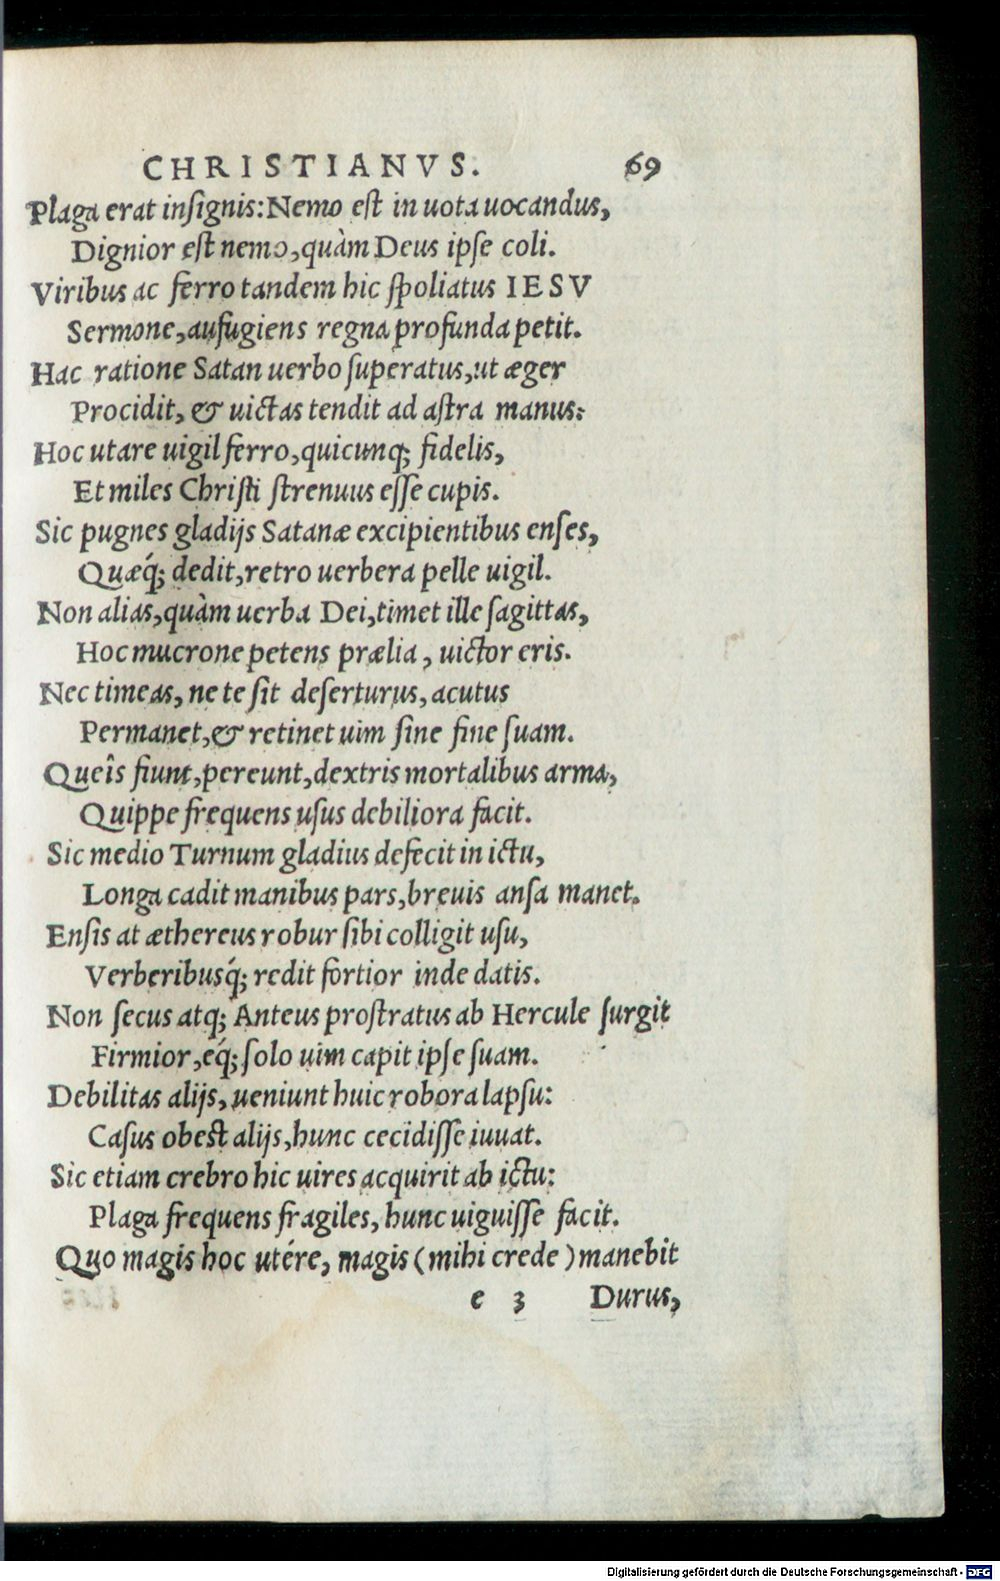 CHRISTIANVS. 69
Plaga erat insignis: Nemo est in uota uocandus,
Dignior est nemo, quàm Deus ipse coli.
Viribus ac ferro tandem hic spoliatus IESV
Sermone, aufugiens regna profunda petit.
Hac ratione Satan uerbo superatus, ut æger
Procidit, & uictas tendit ad astra manus:
Hoc utare uigil ferro, quicunq; fidelis,
Et miles Christi strenuus esse cupis.
Sic pugnes gladijs Satanæ excipientibus enses,
Quæq́; dedit, retro uerbera pelle uigil.
Non alias, quàm uerba Dei, timet ille sagittas,
Hoc mucrone petens prælia, uictor eris.
Nec timeas, ne te sit deserturus, acutus
Permanet, & retinet uim sine fine suam.
Queîs fiunt, pereunt, dextris mortalibus arma,
Quippe frequens usus debiliora facit.
Sic medio Turnum gladius defecit in ictu,
Longa cadit manibus pars, breuis ansa manet.
Ensis at æthereus robur sibi colligit usu,
Verberibusq́; redit fortior inde datis.
Non secus atq; Anteus prostratus ab Hercule surgit
Firmior, eq́; solo uim capit ipse suam.
Debilitas alijs, ueniunt huic robora lapsu:
Casus obest alijs, hunc cecidisse iuuat.
Sic etiam crebro hic uires acquirit ab ictu:
Plaga frequens fragiles, hunc uiguisse facit.
Quo magis hoc utére, magis (mihi crede) manebit
e 3 Durus,
Digitalisierung gefördert durch die Deutsche Forschungsgemeinschaft - DFG